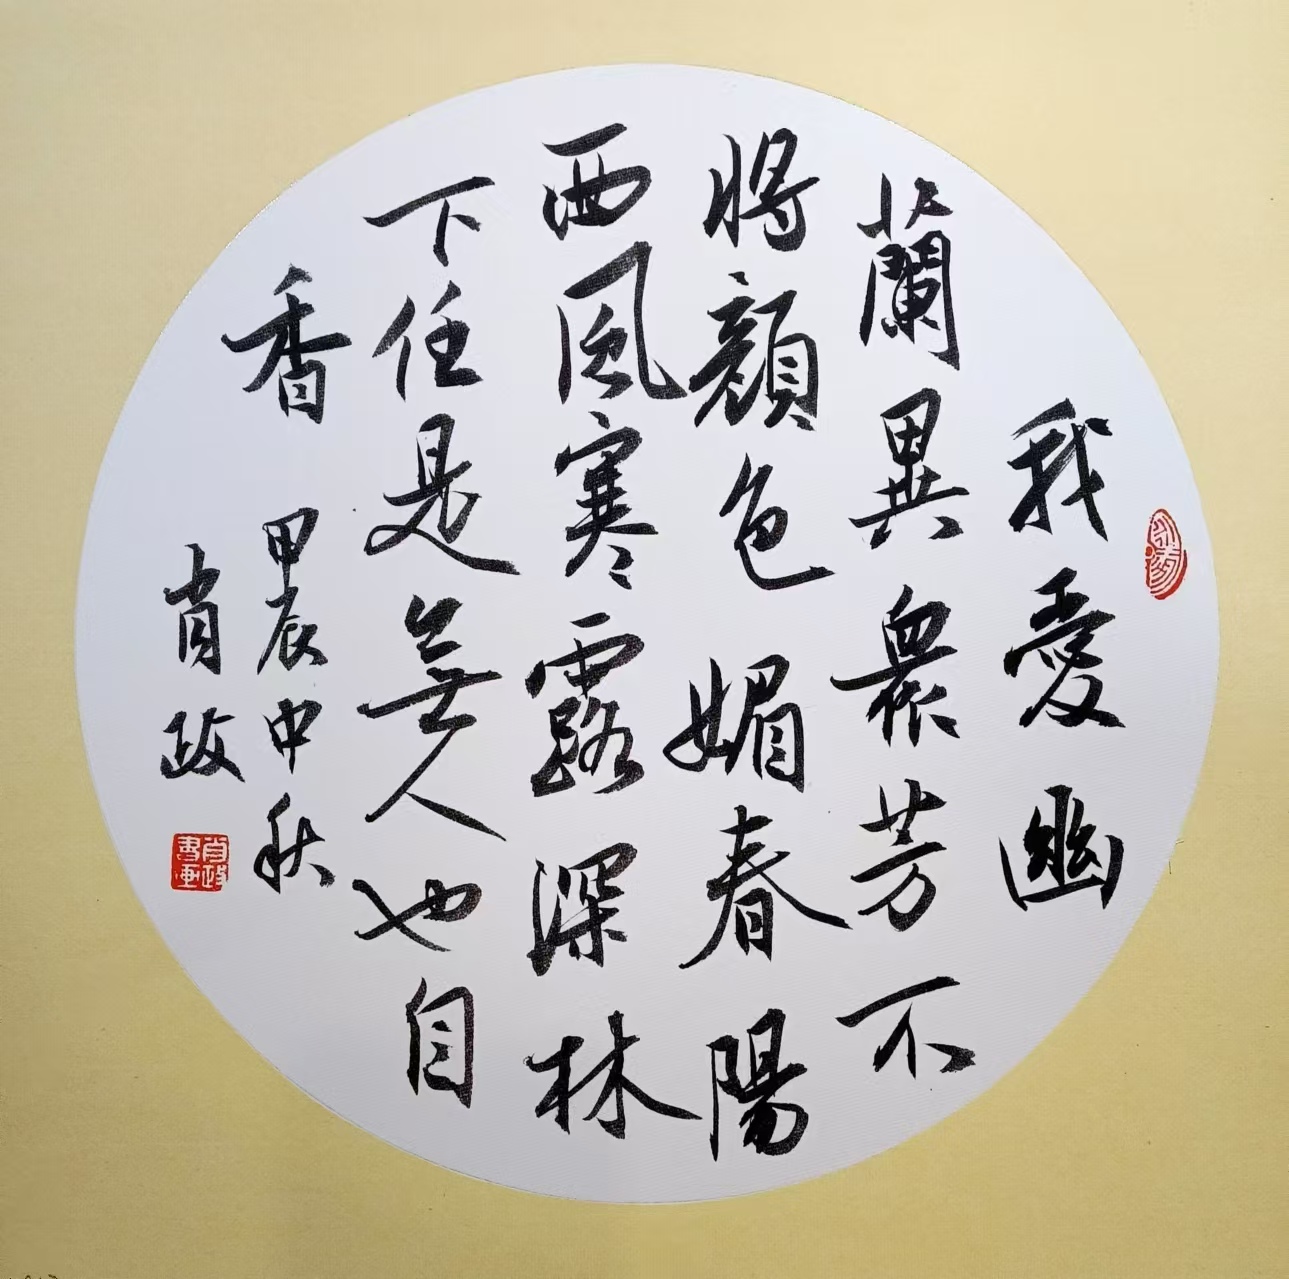 我愛幽
蘭異衆芳不
將顏色媚春陽
西風寒露深林
下任是無人也自
香 甲辰中秋
肖政
肖政書画